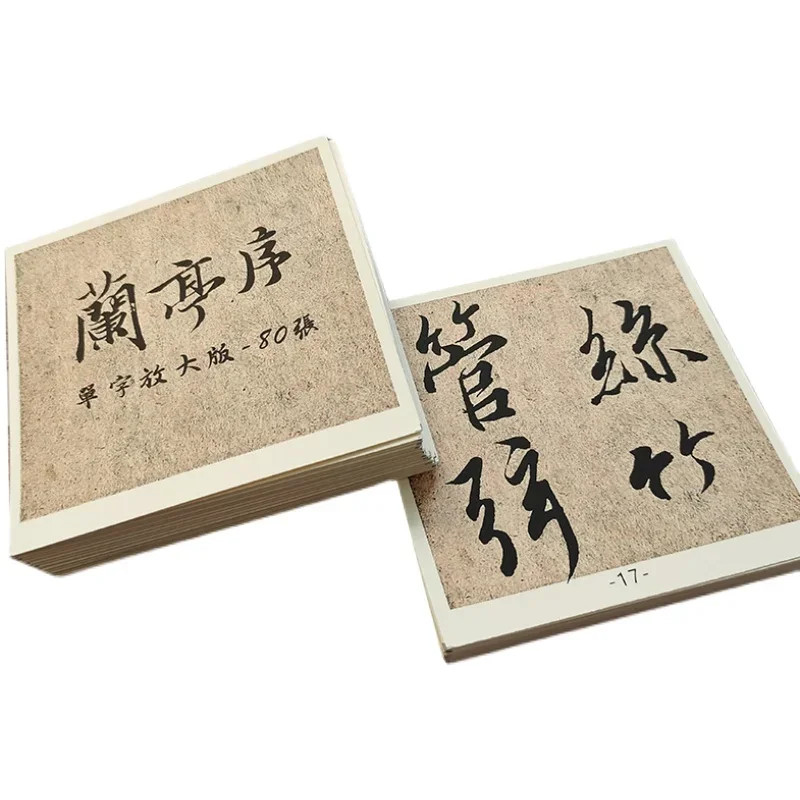 蘭亭序
單字放大版-80張
絲竹
管弦
-17-